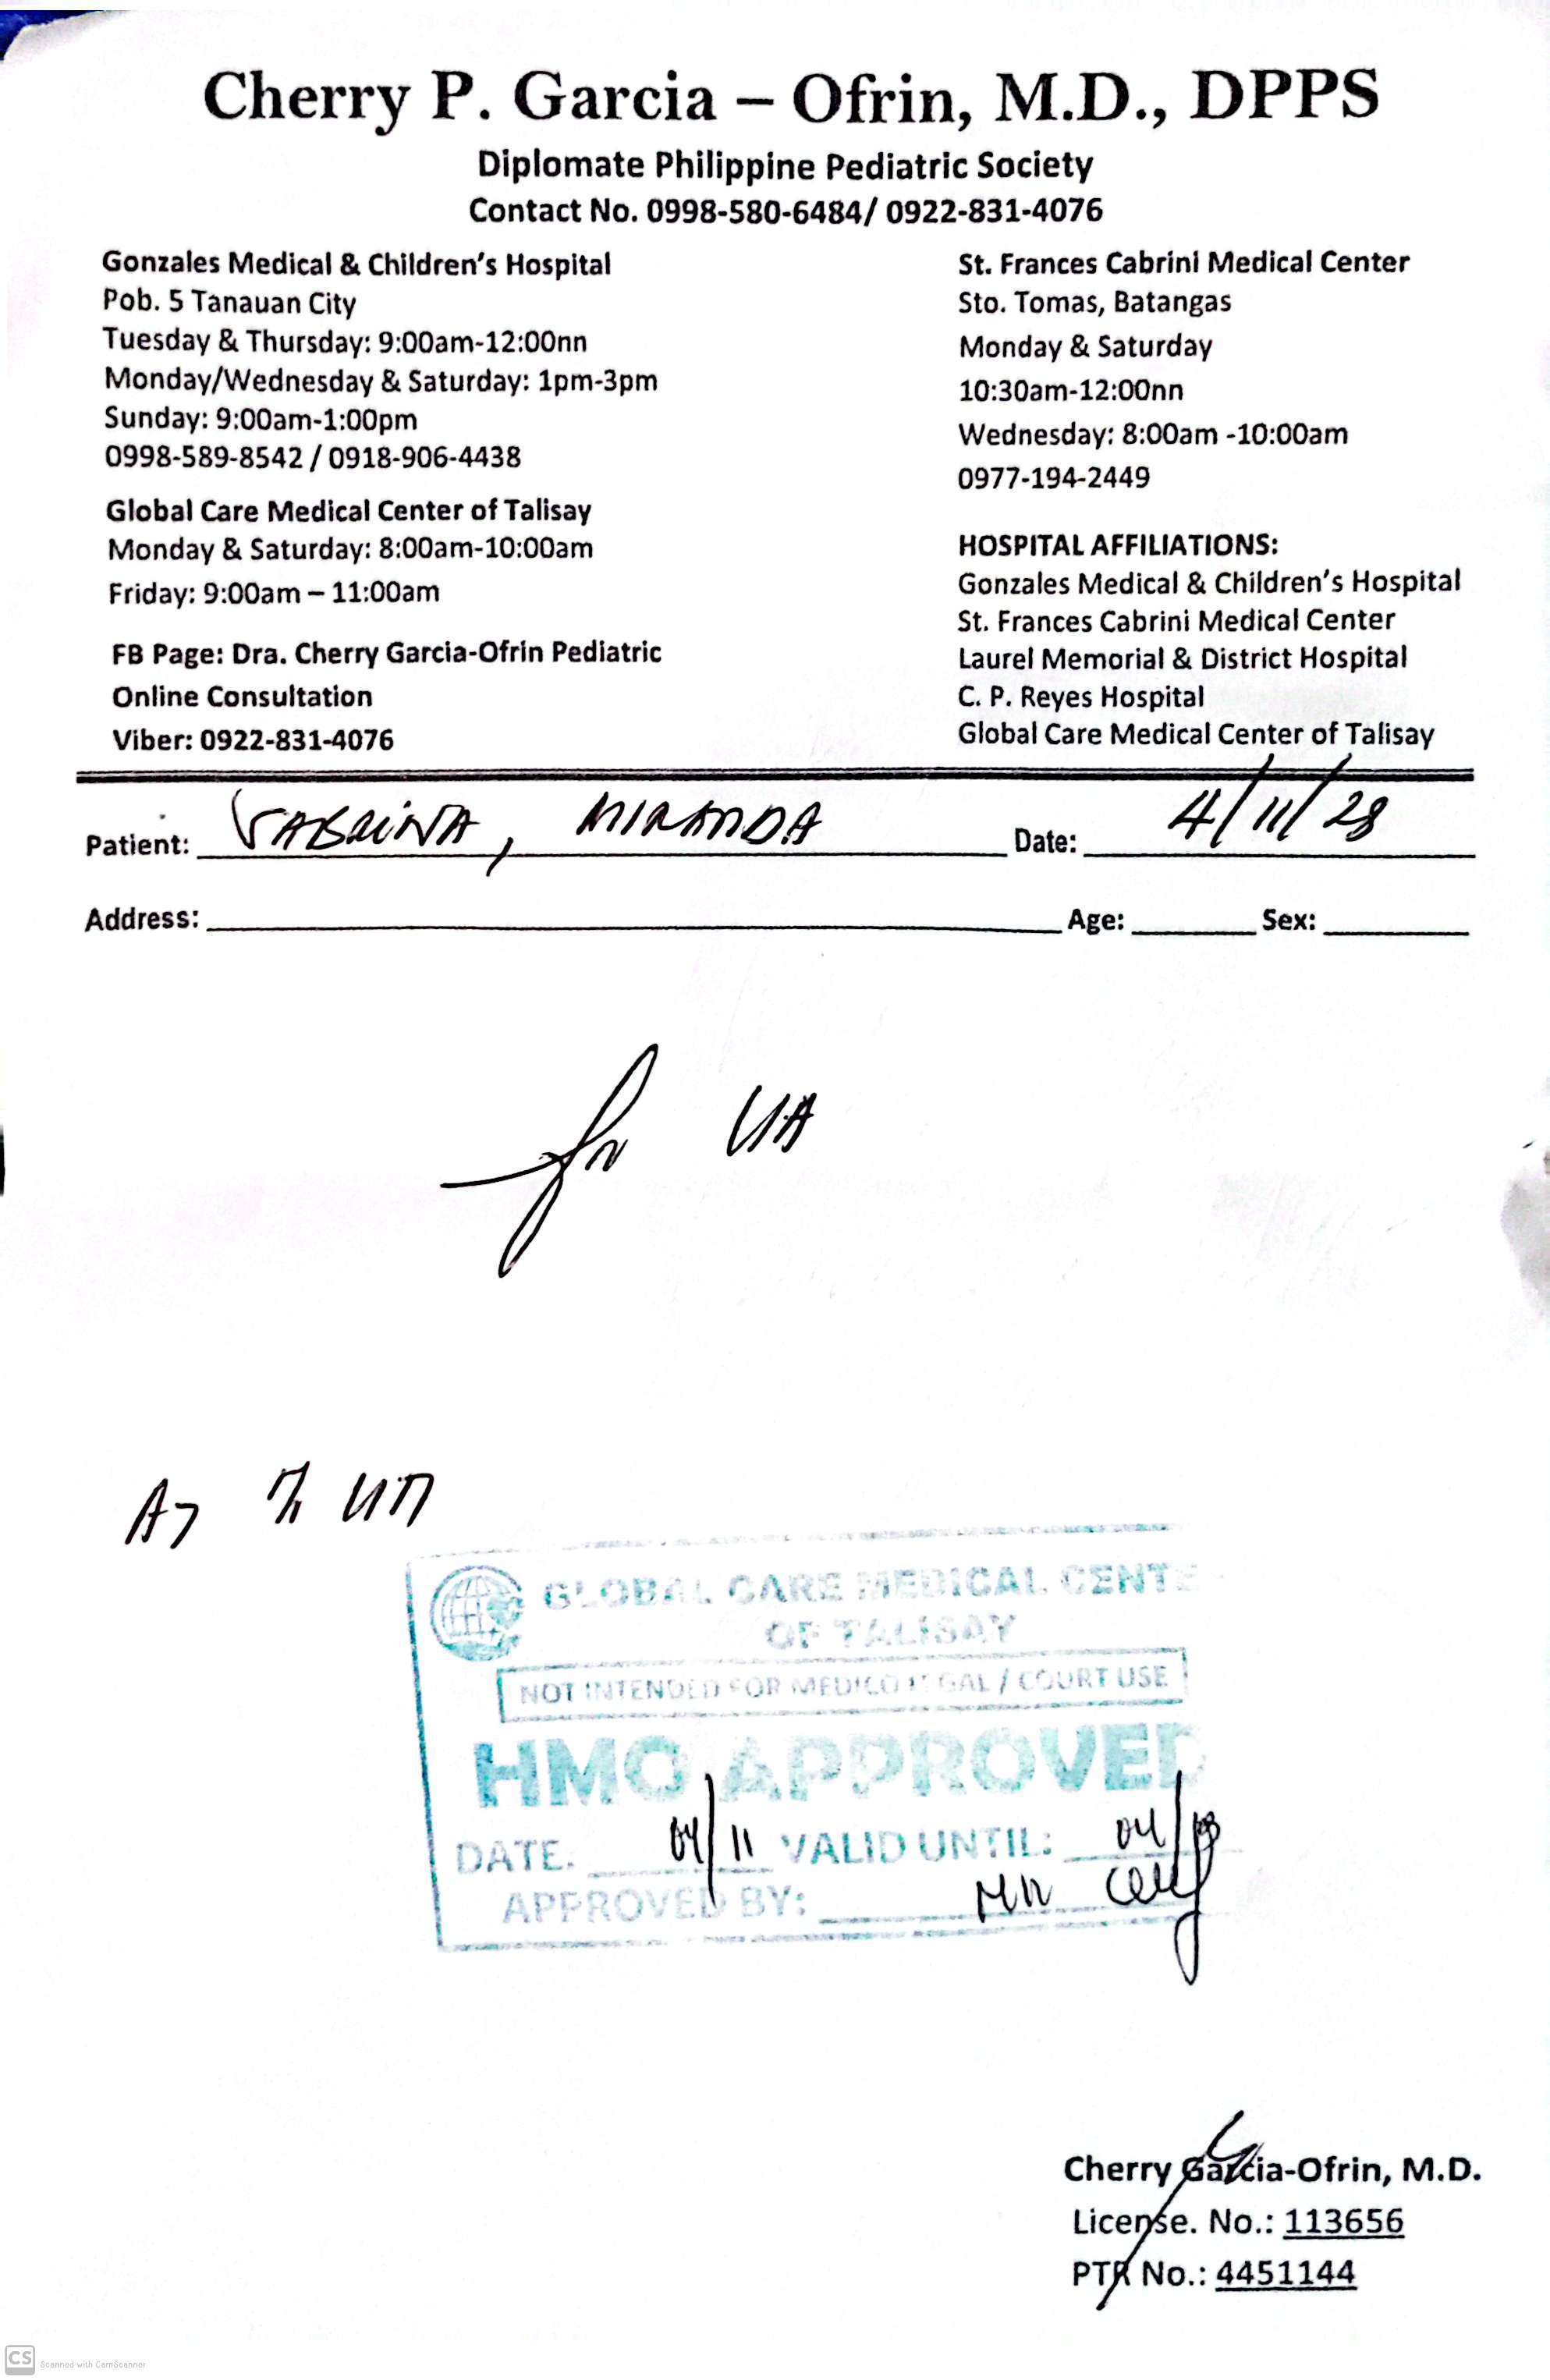 Cherry P. Garcia – Ofrin, M.D., DPPS
Diplomate Philippine Pediatric Society
Contact No. 0998-580-6484/ 0922-831-4076
Gonzales Medical & Children's Hospital
Pob. 5 Tanauan City
Tuesday & Thursday: 9:00am-12:00nn
Monday/Wednesday & Saturday: 1pm-3pm
Sunday: 9:00am-1:00pm
0998-589-8542 / 0918-906-4438
Global Care Medical Center of Talisay
Monday & Saturday: 8:00am-10:00am
Friday: 9:00am – 11:00am
FB Page: Dra. Cherry Garcia-Ofrin Pediatric
Online Consultation
Viber: 0922-831-4076
St. Frances Cabrini Medical Center
Sto. Tomas, Batangas
Monday & Saturday
10:30am-12:00nn
Wednesday: 8:00am -10:00am
0977-194-2449
HOSPITAL AFFILIATIONS:
Gonzales Medical & Children's Hospital
St. Frances Cabrini Medical Center
Laurel Memorial & District Hospital
C. P. Reyes Hospital
Global Care Medical Center of Talisay
Patient: MIRANDA Date: 4/11/
Address: Age: Sex:
UA
GLOBAL CARE MEDICAL CENTE
OF TALISAY
NOT INTENDED FOR MEDICO LEGAL / COURT USE
HMO APPROVED
DATE. 04/11 VALID UNTIL: 04/
APPROVED BY:
Cherry Garcia-Ofrin, M.D.
License. No.: 113656
PTR No.: 4451144
CS Scanned with CamScanner